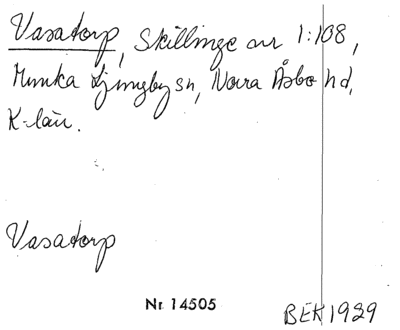 Vasatorp, Skillinge nr 1:108,
Munka Ljungby sn, Norra Åsbo hd,
K-län.
Vasatorp
Nr. 14505
BEK 1929